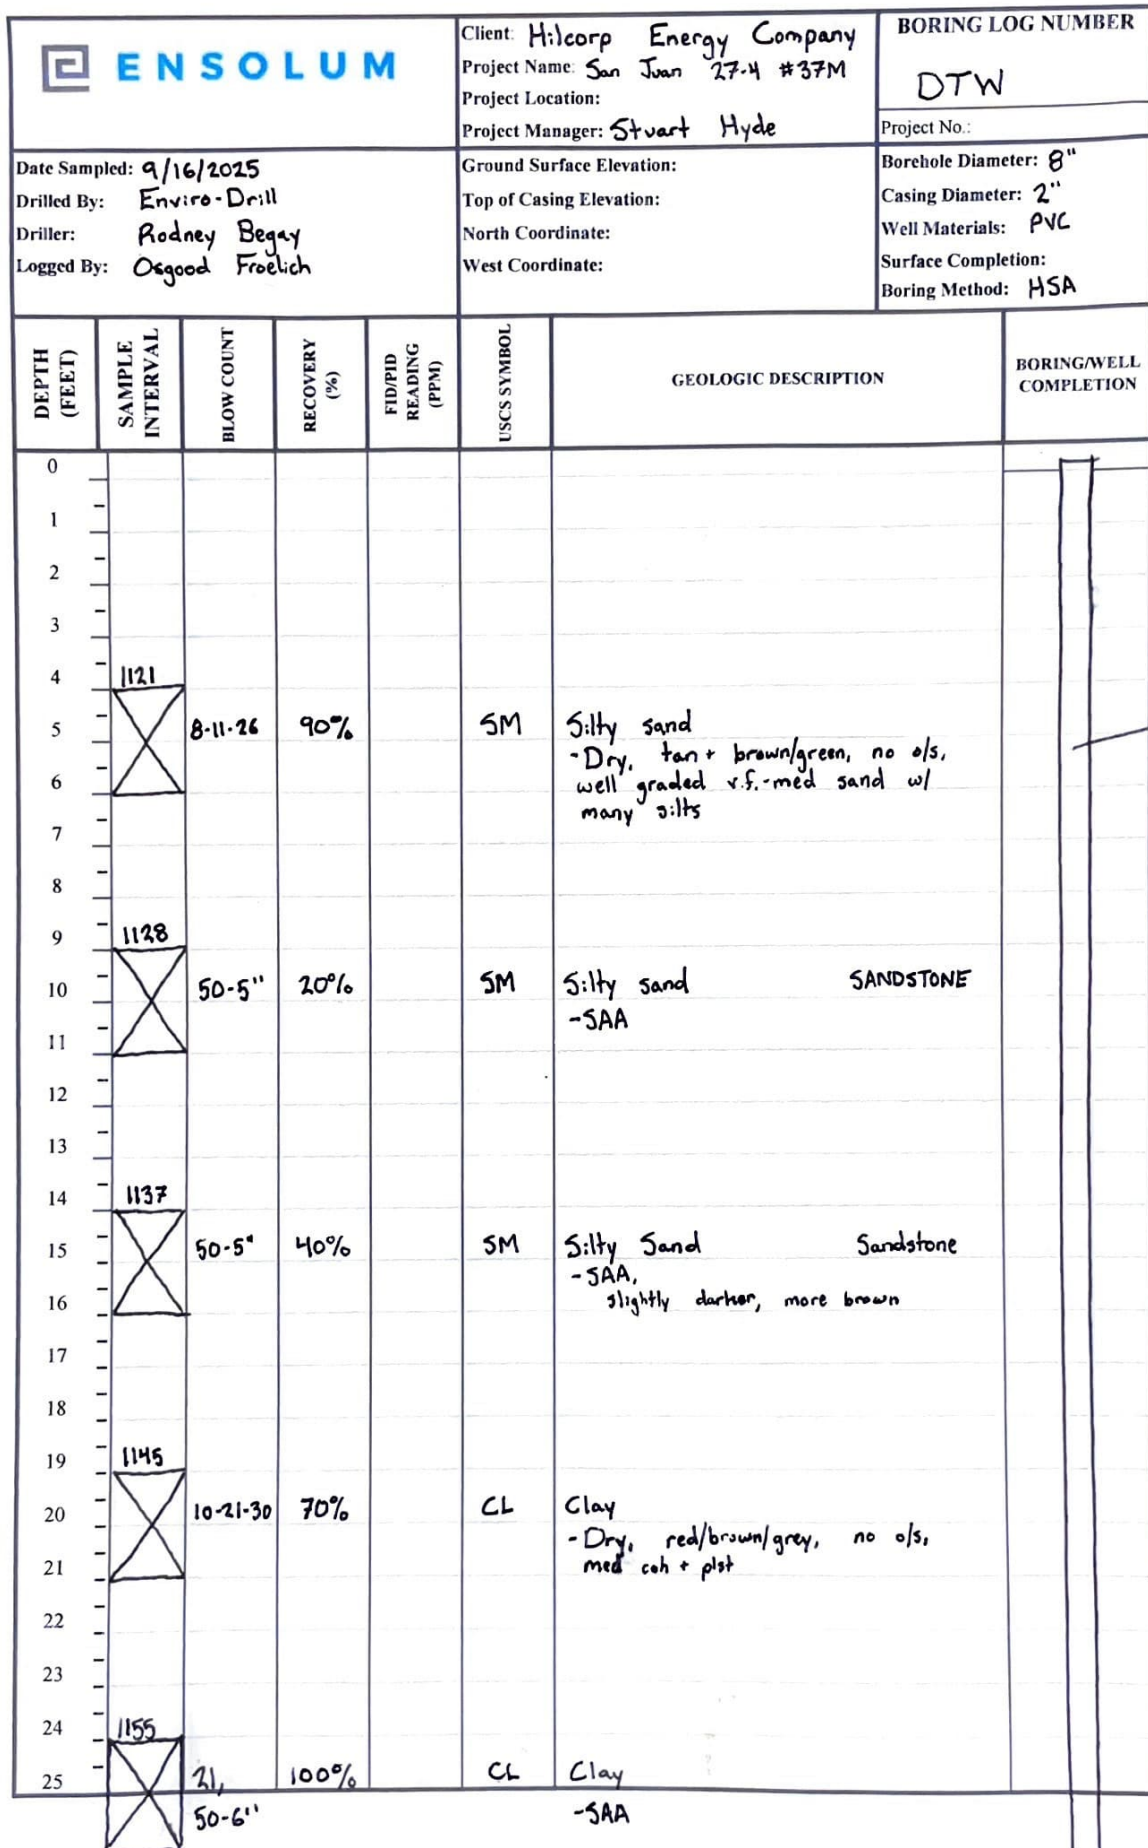 ENSOLUM
Client: Hilcorp Energy Company
Project Name: San Juan 27-4 #37M
Project Location:
Project Manager: Stuart Hyde
BORING LOG NUMBER
DTW
Project No.:
Date Sampled: 9/16/2025
Drilled By: Enviro-Drill
Driller: Rodney Begay
Logged By: Osgood Froelich
Ground Surface Elevation:
Top of Casing Elevation:
North Coordinate:
West Coordinate:
Borehole Diameter: 8"
Casing Diameter: 2"
Well Materials: PVC
Surface Completion:
Boring Method: HSA
DEPTH (FEET)
SAMPLE INTERVAL
BLOW COUNT
RECOVERY (%)
FID/PID READING (PPM)
USCS SYMBOL
GEOLOGIC DESCRIPTION
BORING/WELL COMPLETION
0
1
2
3
4 1121
5 8-11-26 90% SM Silty sand
-Dry, tan + brown/green, no o/s,
6 well graded v.f.-med sand w/
many silts
7
8
9 1128
10 50-5" 20% SM Silty sand SANDSTONE
-SAA
11
12
13
14 1137
15 50-5" 40% SM Silty Sand Sandstone
-SAA,
16 slightly darker, more brown
17
18
19 1145
20 10-21-30 70% CL Clay
-Dry, red/brown/grey, no o/s,
21 med coh + plst
22
23
24 1155
25 21, 100% CL Clay
50-6" -SAA